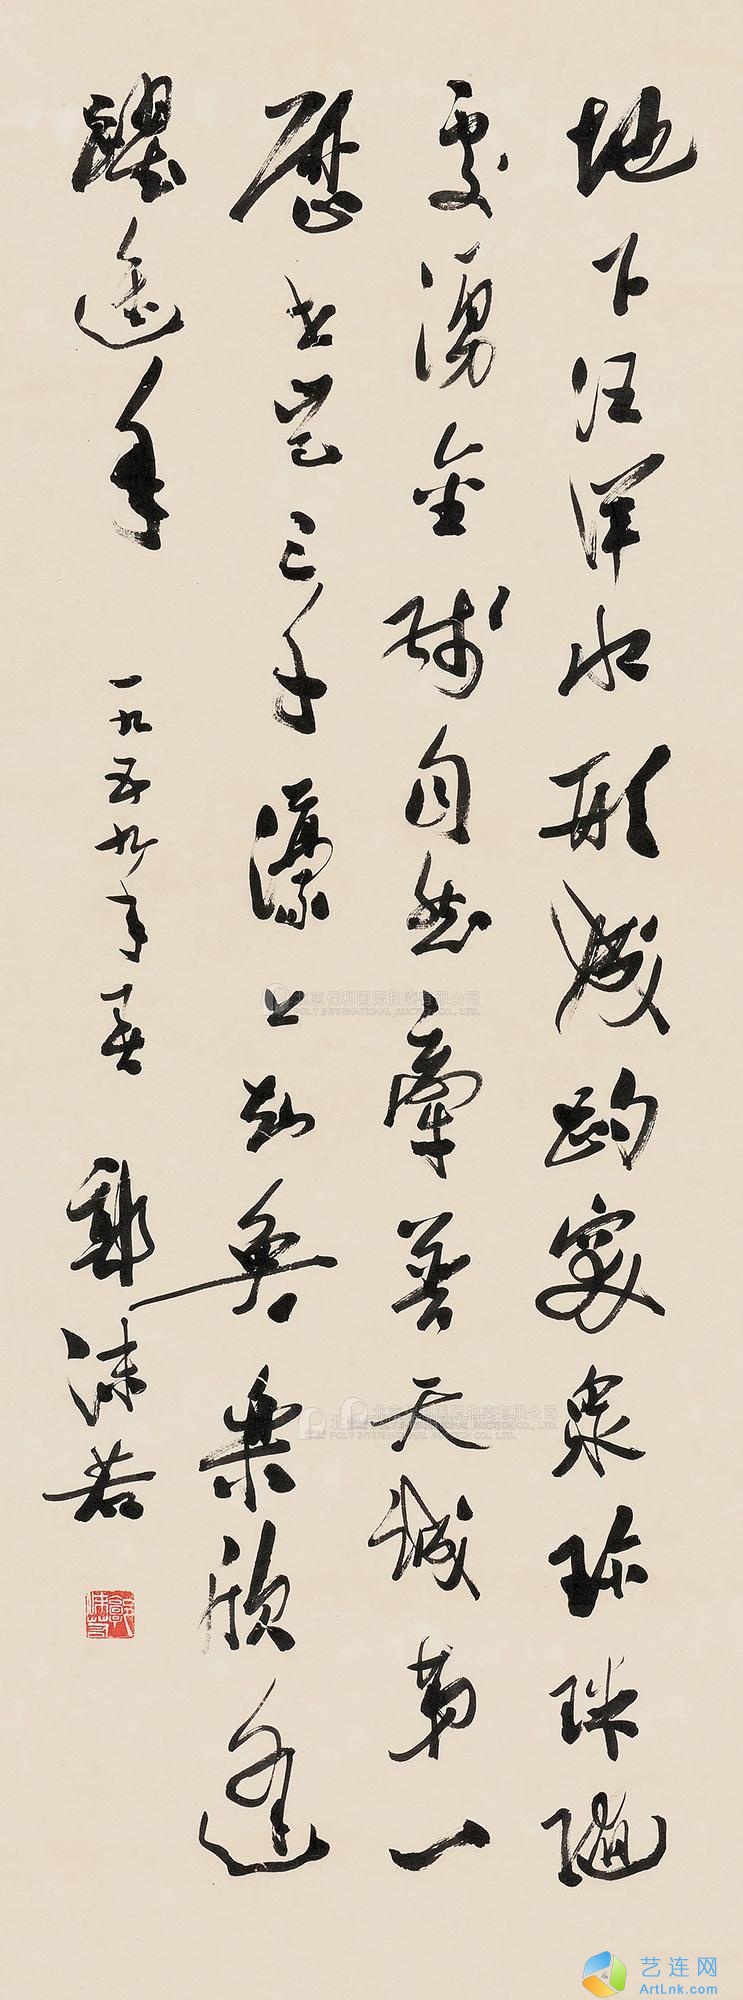 地下汪洋水形成趵突泉珍珠隨
處湧金綫自然牽普天誠第一
歷世豈三千濠上知魚樂欣逢
躍進年
一九五九年春 郭沫若
郭沫若
北京保利国际拍卖有限公司
POLY INTERNATIONAL AUCTION CO., LTD.
北京保利国际拍卖有限公司
POLY INTERNATIONAL AUCTION CO., LTD.
艺连网
ArtLnk.com